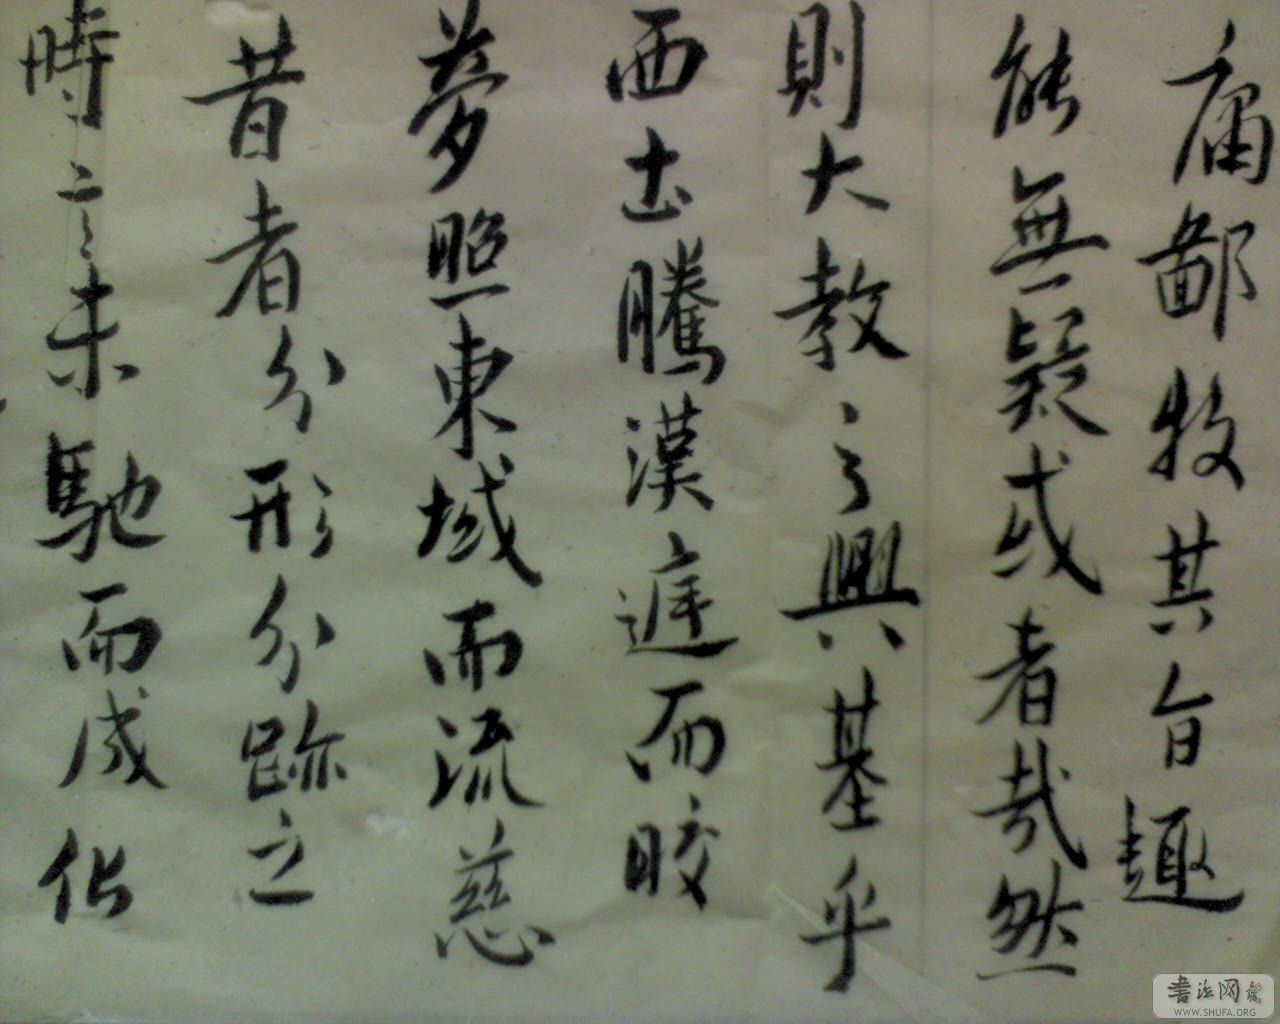 庸鄙牧其旨趣
能無疑或者哉然
則大教之興基乎
西土騰漢迋而皎
夢照東域而流慈
昔者分形分跡之
時言未馳而成化
書法网
WWW.SHUFA.ORG